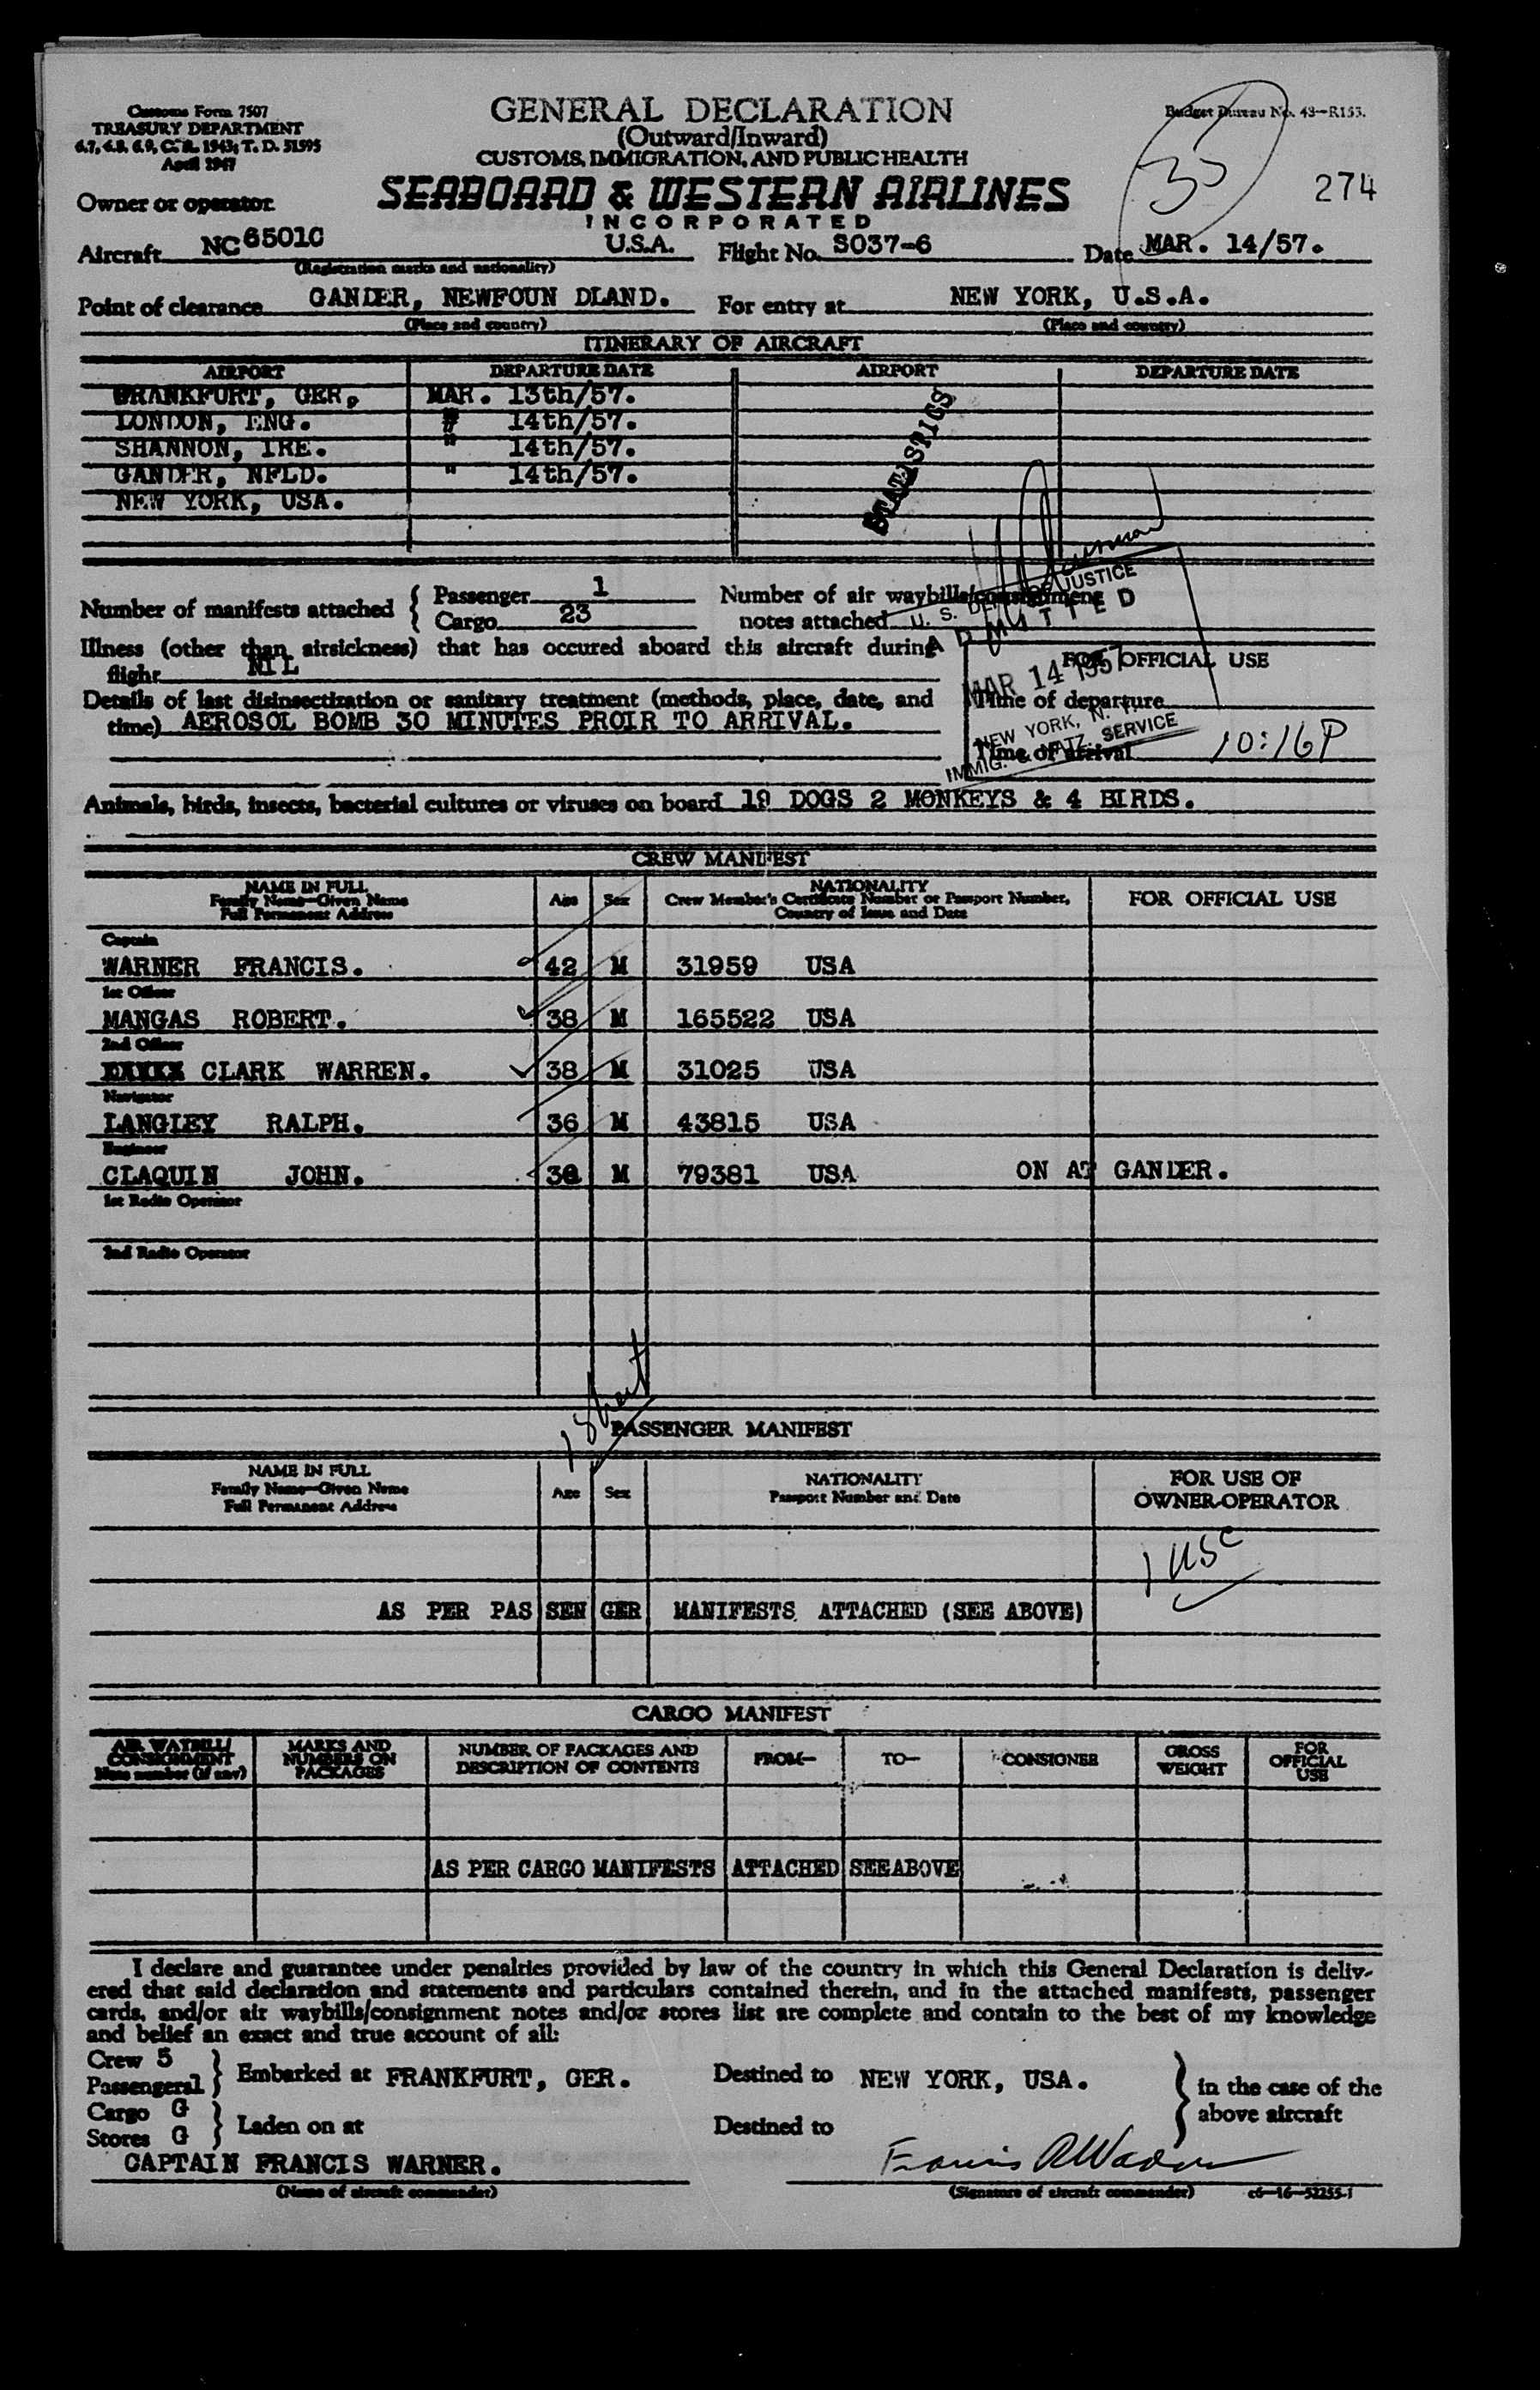 Customs Form 7507
TREASURY DEPARTMENT
6.7, 6.8, 6.9, C. R. 1943; T. D. 51595
April 1947
GENERAL DECLARATION
(Outward/Inward)
CUSTOMS, IMMIGRATION, AND PUBLIC HEALTH
Budget Bureau No. 43—R153.
35
274
Owner or operator
SEABOARD & WESTERN AIRLINES
INCORPORATED
Aircraft NC 6501C U.S.A. Flight No. S037-6 Date MAR. 14/57.
(Registration marks and nationality)
Point of clearance GANDER, NEWFOUN DLAND. For entry at NEW YORK, U.S.A.
(Place and country) (Place and country)
ITINERARY OF AIRCRAFT
AIRPORT DEPARTURE DATE AIRPORT DEPARTURE DATE
FRANKFURT, GER, MAR. 13th/57.
LONDON, ENG. " 14th/57.
SHANNON, IRE. " 14th/57.
GANDER, NFLD. " 14th/57.
NEW YORK, USA.
STATISTICS
Number of manifests attached { Passenger 1
Cargo 23
Number of air waybills/consignment
notes attached
U. S. DEPT. OF JUSTICE
ADMITTED
MAR 14 1957
NEW YORK, N. Y.
IMMIG. & NATZ. SERVICE
Illness (other than airsickness) that has occured aboard this aircraft during
flight NIL
FOR OFFICIAL USE
Details of last disinsectization or sanitary treatment (methods, place, date, and
time) AEROSOL BOMB 30 MINUTES PROIR TO ARRIVAL.
Time of departure
Time of arrival 10:16P
Animals, birds, insects, bacterial cultures or viruses on board 19 DOGS 2 MONKEYS & 4 BIRDS.
CREW MANIFEST
NAME IN FULL
Family Name—Given Name
Full Permanent Address
Age Sex
NATIONALITY
Crew Member's Certificate Number or Passport Number,
Country of Issue and Date
FOR OFFICIAL USE
Captain
WARNER FRANCIS. 42 M 31959 USA
1st Officer
MANGAS ROBERT. 38 M 165522 USA
2nd Officer
CLARK WARREN. 38 M 31025 USA
Navigator
LANGLEY RALPH. 36 M 43815 USA
Engineer
CLAQUIN JOHN. M 79381 USA ON AT GANDER.
1st Radio Operator
2nd Radio Operator
1 sheet
PASSENGER MANIFEST
NAME IN FULL
Family Name—Given Name
Full Permanent Address
Age Sex
NATIONALITY
Passport Number and Date
FOR USE OF
OWNER-OPERATOR
1 USC
AS PER PAS SEN GER MANIFESTS ATTACHED (SEE ABOVE)
CARGO MANIFEST
AIR WAYBILL/
CONSIGNMENT
Note number (if any)
MARKS AND
NUMBERS ON
PACKAGES
NUMBER OF PACKAGES AND
DESCRIPTION OF CONTENTS
FROM— TO— CONSIGNEE
GROSS
WEIGHT
FOR
OFFICIAL
USE
AS PER CARGO MANIFESTS ATTACHED SEE ABOVE
I declare and guarantee under penalties provided by law of the country in which this General Declaration is deliv-
ered that said declaration and statements and particulars contained therein, and in the attached manifests, passenger
cards, and/or air waybills/consignment notes and/or stores list are complete and contain to the best of my knowledge
and belief an exact and true account of all:
Crew 5
Passengers 1 } Embarked at FRANKFURT, GER. Destined to NEW YORK, USA.
Cargo G
Stores G } Laden on at Destined to
} in the case of the
above aircraft
CAPTAIN FRANCIS WARNER.
(Name of aircraft commander)
Francis R Warner
(Signature of aircraft commander) c6—16—52255-1